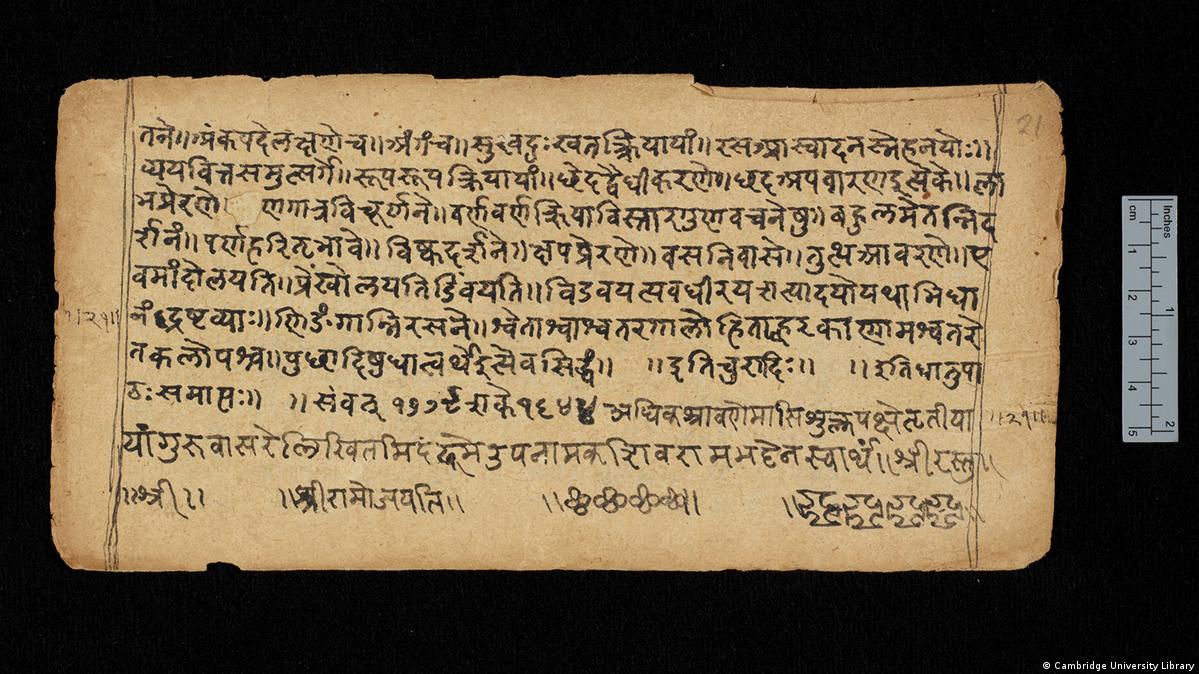 तने॥अंकपदेलक्षणेच॥अंगंच॥सुखदुःखतत्क्रियायां॥रसआस्वादनस्नेहनयोः॥
व्ययवित्तसमुत्सर्गे॥रूपरूपक्रियायां॥छेदद्वैधीकरणे॥छदअपवारणइत्येके॥ला
भप्रेरणे॥ व्रणगात्रविचूर्णने॥वर्णवर्णक्रियाविस्तारगुणवचनेषु॥बहुलमेतन्निद
र्शनं॥पर्णहरितभावे॥विष्कदर्शने॥क्षेपप्रेरणे॥वसनिवासे॥तुत्थआवरणे॥ए
वमांदोलयति॥प्रेंखोलयतिडिंबयति॥
नंद्रष्टव्याः॥णिङंगान्निरसने॥श्वेताश्वाश्वतरगालोडिताह्वरकाणामश्वतरे
तकलोपश्च॥पुछादिषुधात्वर्थेइत्येवसिद्धं॥ ॥इतिचुरादिः॥ ॥इतिधातुपा
ठःसमाप्तः॥ ॥संवत् शके अधिकश्रावणेमासिशुक्लपक्षेतृतीया
यांगुरुवासरेलिखितमिदं स्वार्थं॥श्रीरस्तु॥
॥श्री॥ ॥श्रीरामोजयति॥
॥२१॥
॥२१॥
21
Inches
cm
1
2
3
4
5
1
2
© Cambridge University Library